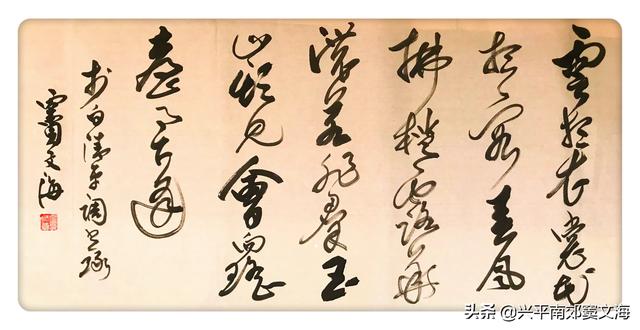 雲想衣裳花
想容春風
拂檻露華
濃若非群玉
山頭見會向瑤
臺月下逢
李白清平調
竇文海
头条 @兴平南郊窦文海